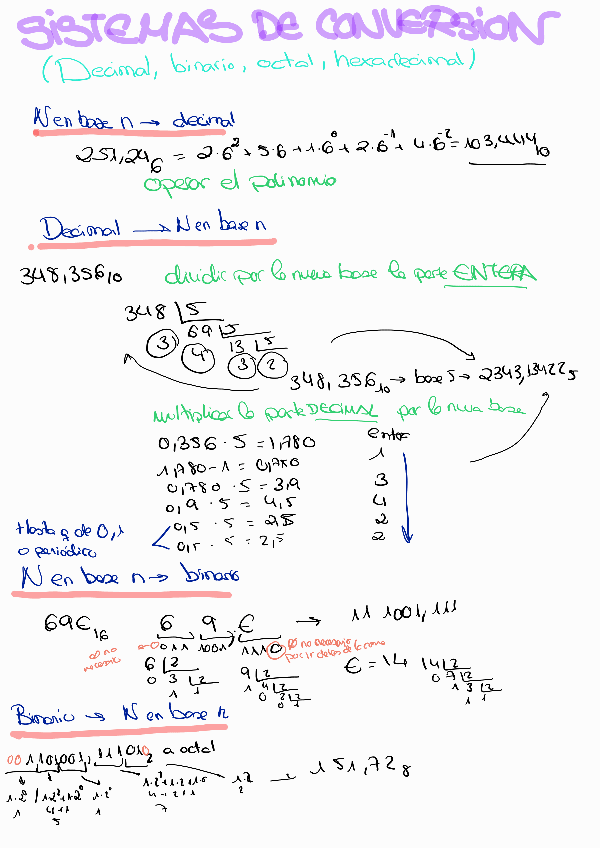 SISTEMAS DE CONVERSION
(Decimal, binario, octal, hexadecimal)
N en base n → decimal
251,24₆ = 2·6² + 5·6 + 1·6⁰ + 2·6⁻¹ + 4·6⁻² = 103,444₁₀
Operar el polinomio
Decimal → N en base n
348,356₁₀ dividir por la nueva base la parte ENTERA
348 | 5
3 69 | 5
4 13 | 5
3 2
348,356₁₀ → base 5 → 2343,13422₅
multiplicar la parte DECIMAL por la nueva base
0,356 · 5 = 1,780 1
1,780 - 1 = 0,780
0,780 · 5 = 3,9 3
0,9 · 5 = 4,5 4
0,5 · 5 = 2,5 2
0,5 · 5 = 2,5 2
Hasta q de 0,1
o periódico
N en base n → binario
69E₁₆ 6 9, E → 11 1001,111
0011 1001 1110
6 | 2
0 3 | 2
1 1
9 | 2
1 4 | 2
0 2 | 2
0 1
E = 14 14 | 2
0 7 | 2
1 3 | 2
1 1
Binario → N en base n
001101001,111010₂ a octal → 151,72₈